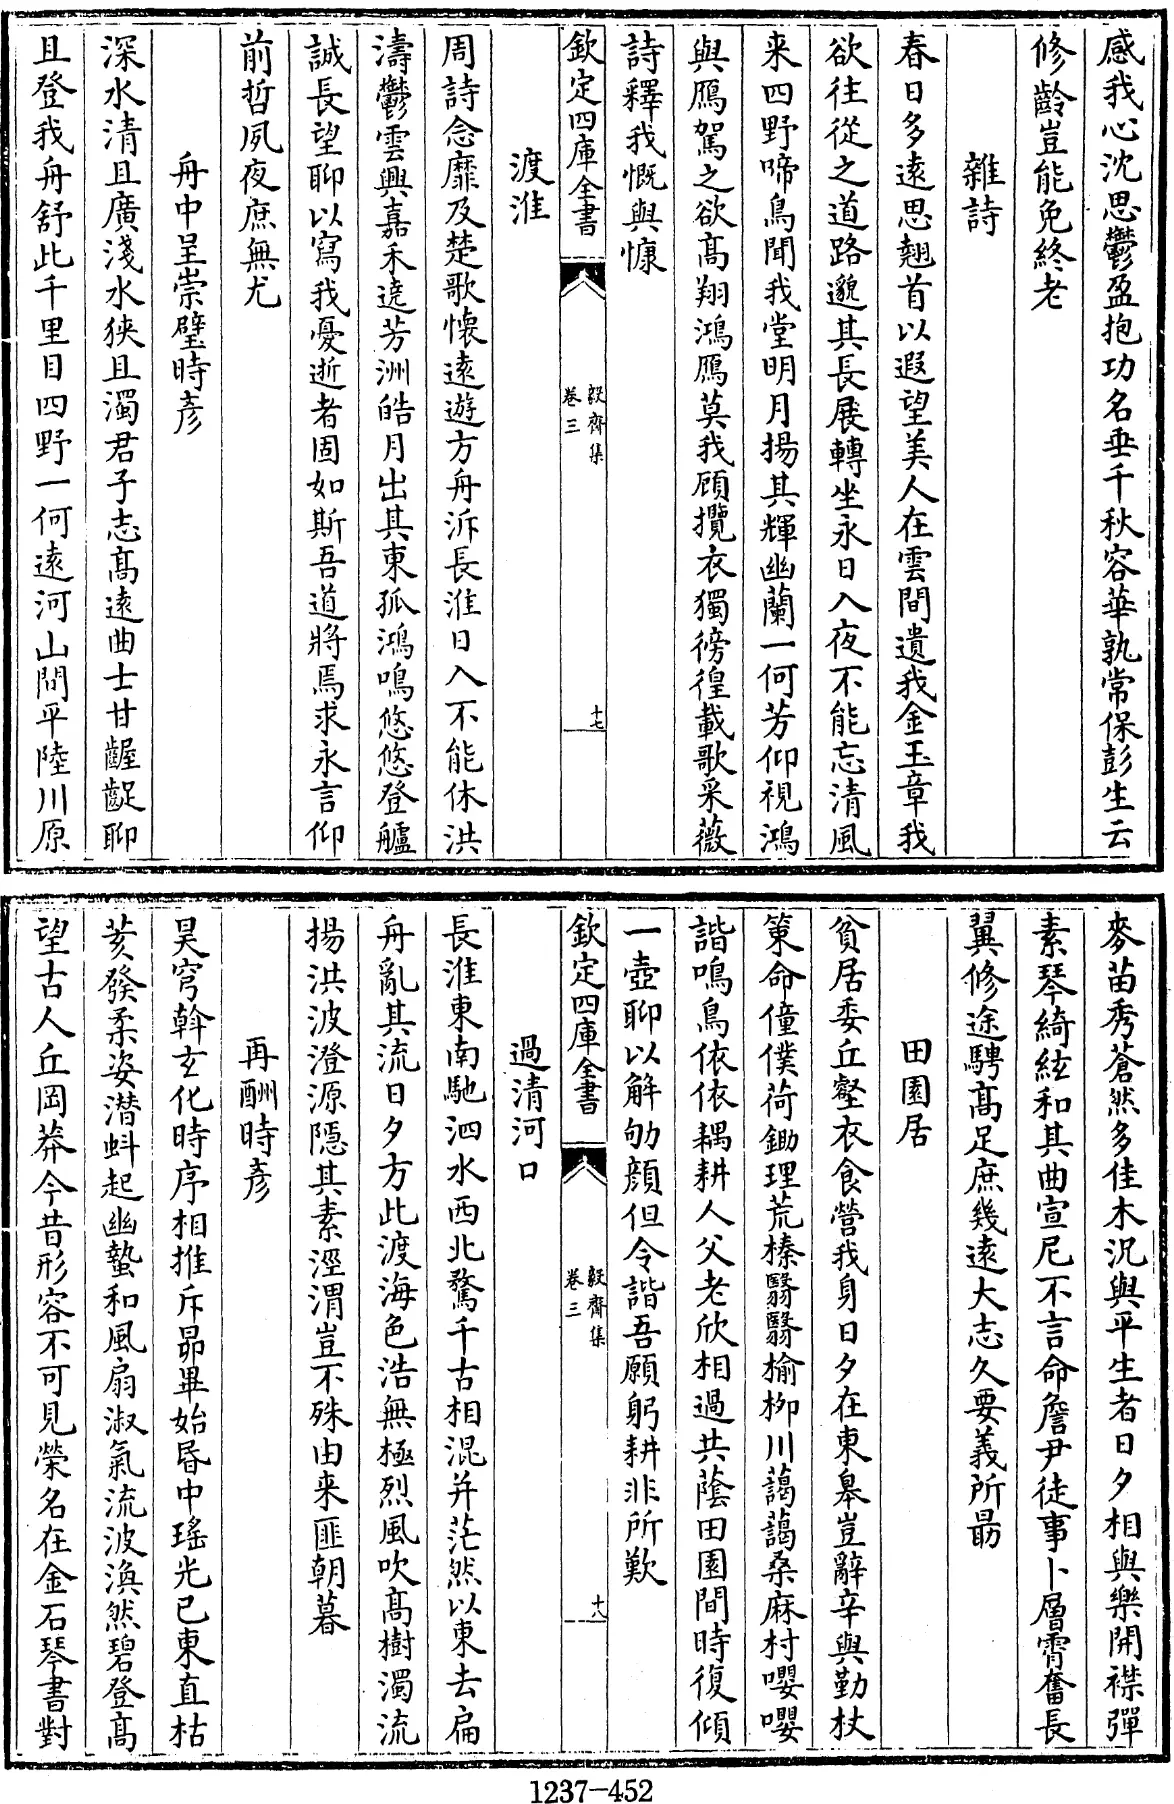 感我心沈思鬱盈抱功名垂千秋容華孰常保彭生云
修齡豈能免終老
雜詩
春日多遠思翹首以遐望美人在雲間遺我金玉章我
欲往從之道路邈其長展轉坐永日入夜不能忘清風
来四野啼鳥聞我堂明月揚其輝幽蘭一何芳仰視鴻
與鴈駕之欲高翔鴻鴈莫我顧攬衣獨徬徨載歌采薇
詩釋我慨與慷
欽定四庫全書
毅齋集
卷三
十七
渡淮
周詩念靡及楚歌懷遠遊方舟泝長淮日入不能休洪
濤鬱雲興嘉禾遶芳洲皓月出其東孤鴻鳴悠悠登艫
誠長望聊以寫我憂逝者固如斯吾道將焉求永言仰
前哲夙夜庶無尤
舟中呈崇璧時彥
深水清且廣淺水狹且濁君子志高遠曲士甘齷齪聊
且登我舟舒此千里目四野一何遠河山間平陸川原
麥苗秀蒼然多佳木況與平生者日夕相與樂開襟彈
素琴綺絃和其曲宣尼不言命詹尹徒事卜層霄奮長
翼修途騁高足庶幾遠大志久要義所勗
田園居
貧居委丘壑衣食營我身日夕在東皋豈辭辛與勤杖
策命僮僕荷鋤理荒榛翳翳榆柳川藹藹桑麻村嚶嚶
諧鳴鳥依依耦耕人父老欣相過共蔭田園間時復傾
一壺聊以解劬顏但令諧吾願躬耕非所歎
欽定四庫全書
毅齋集
卷三
十八
過清河口
長淮東南馳泗水西北騖千古相混并茫然以東去扁
舟亂其流日夕方此渡海色浩無極烈風吹高樹濁流
揚洪波澄源隱其素涇渭豈不殊由来匪朝暮
再酬時彥
昊穹斡玄化時序相推斥昴畢始昏中瑤光已東直枯
荄發柔姿潛蚪起幽蟄和風扇淑氣流波渙然碧登高
望古人丘岡莽今昔形容不可見榮名在金石琴書對
1237-452